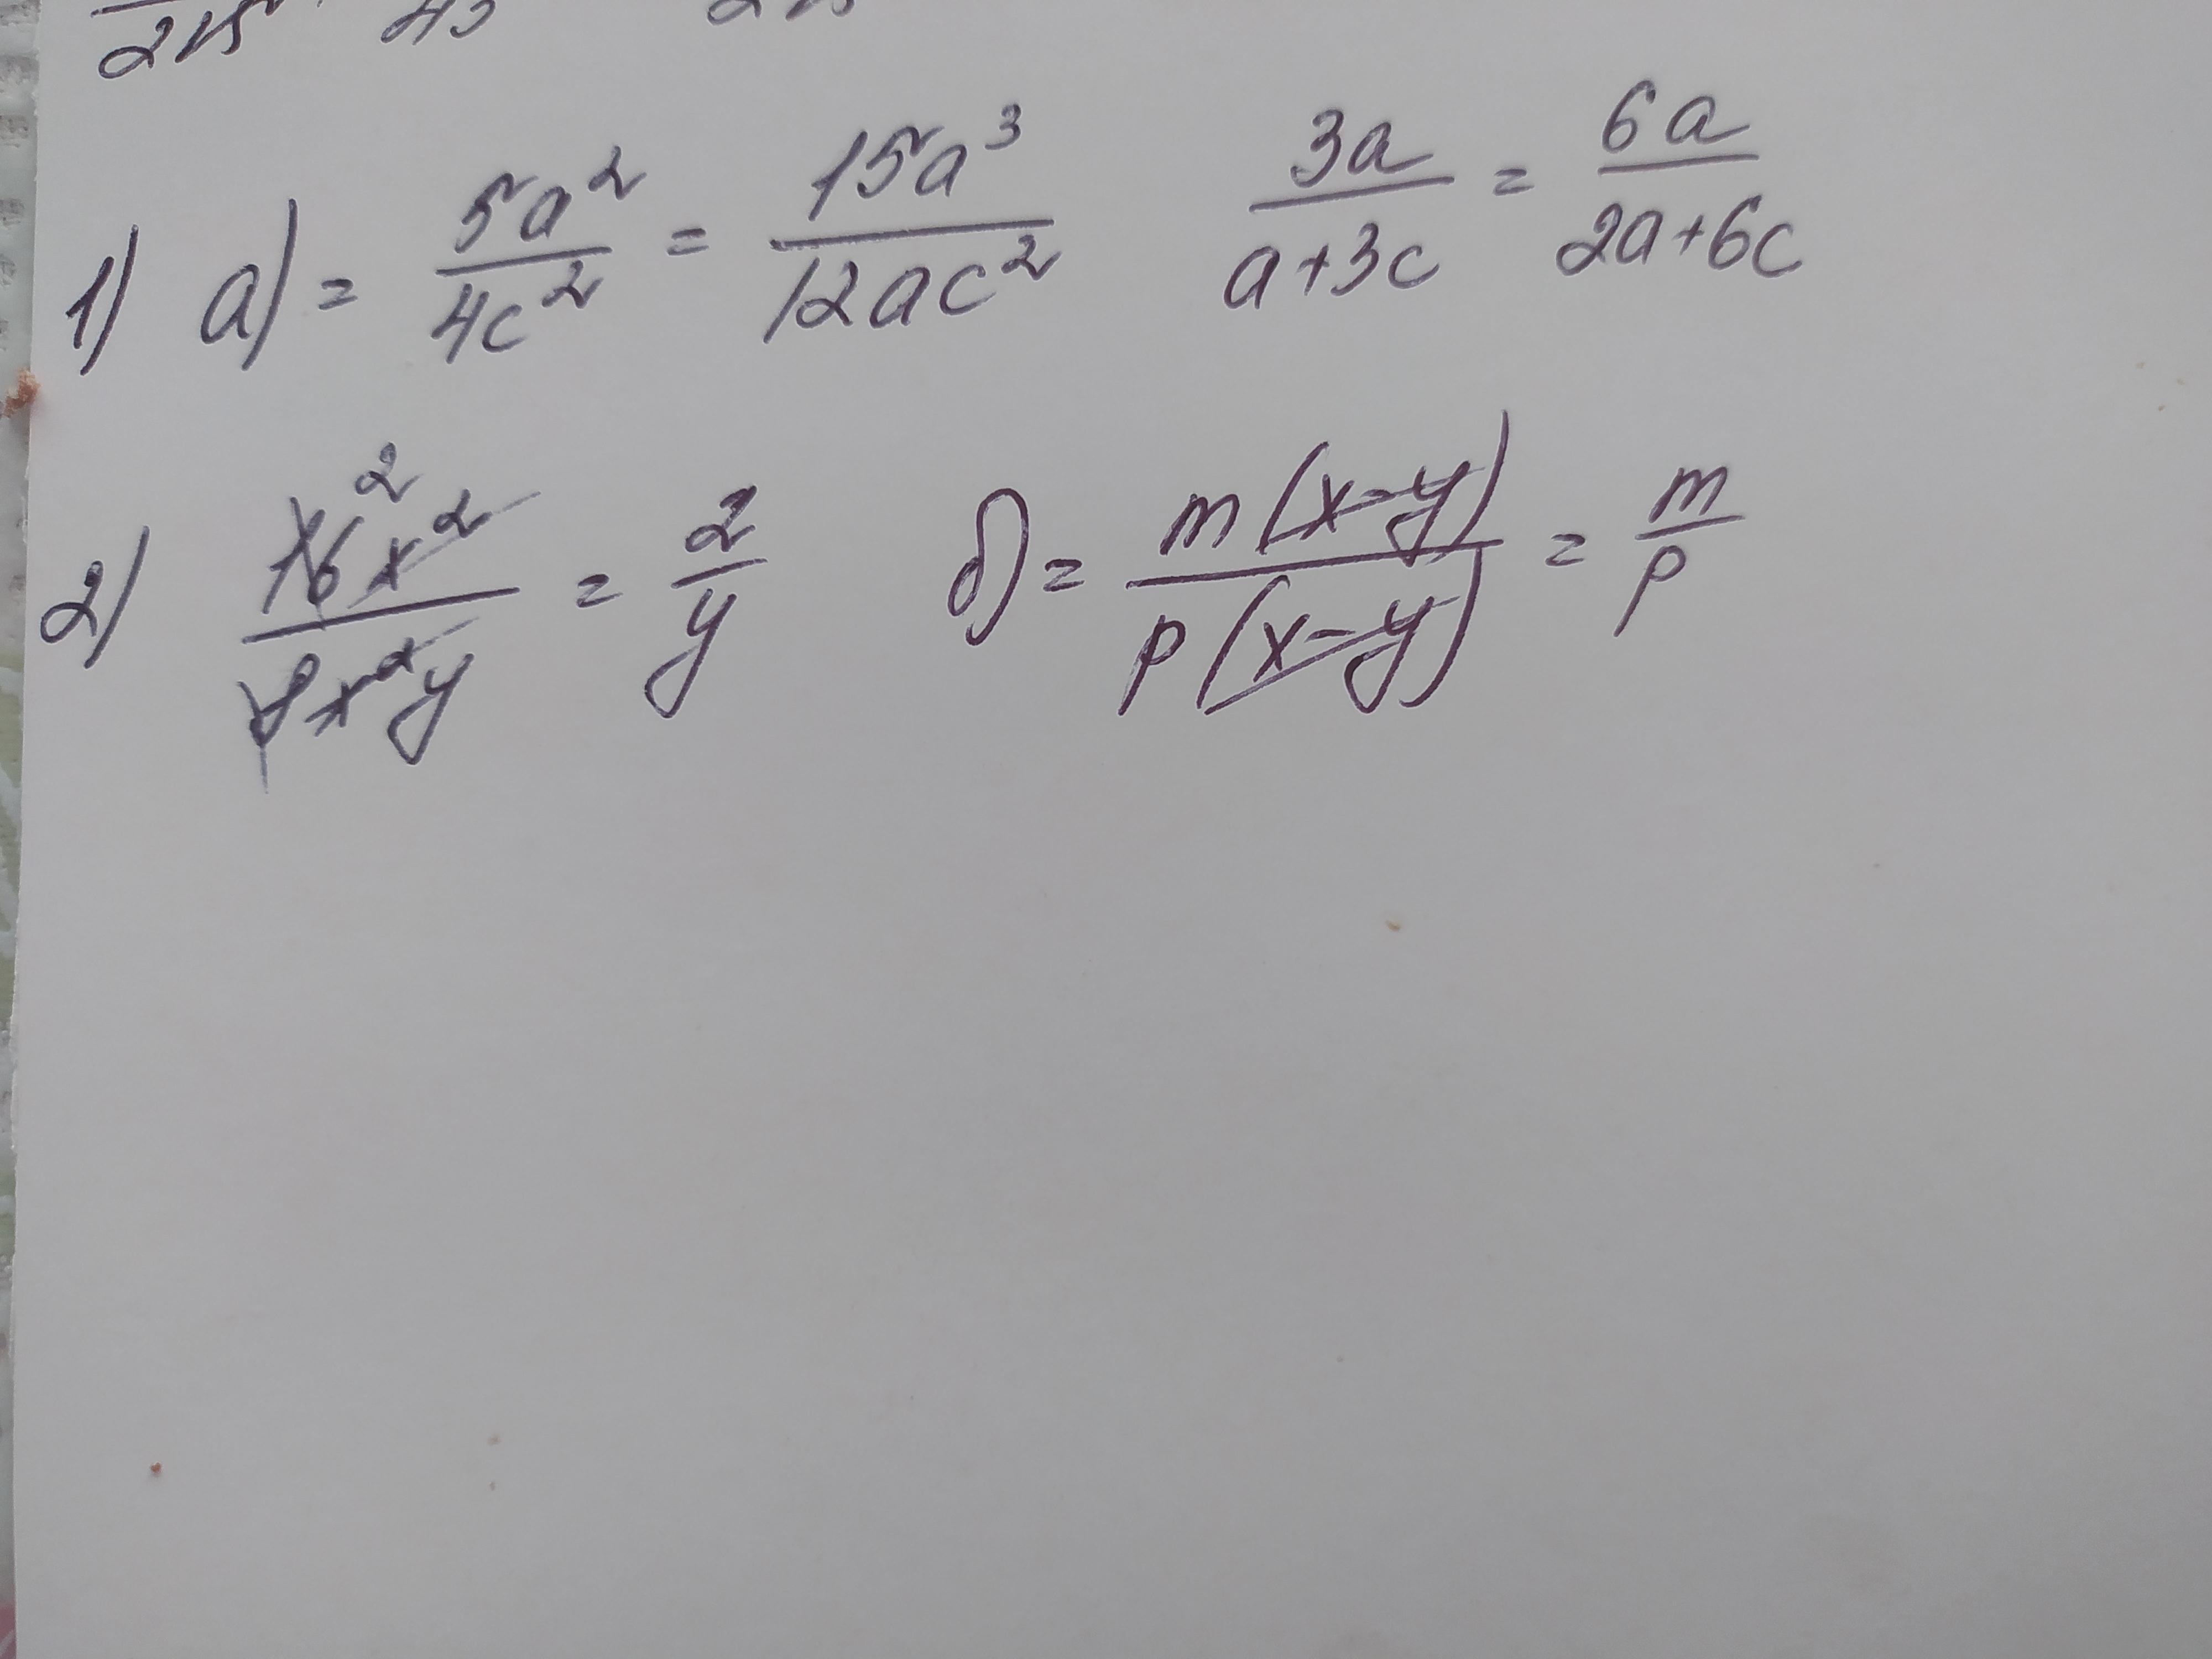 1) a) = 5a²/4c² = 15a³/12ac² 3a/a+3c = 6a/2a+6c
2) 16²x²/8x²y = 2/y б) = m(x-y)/p(x-y) = m/p